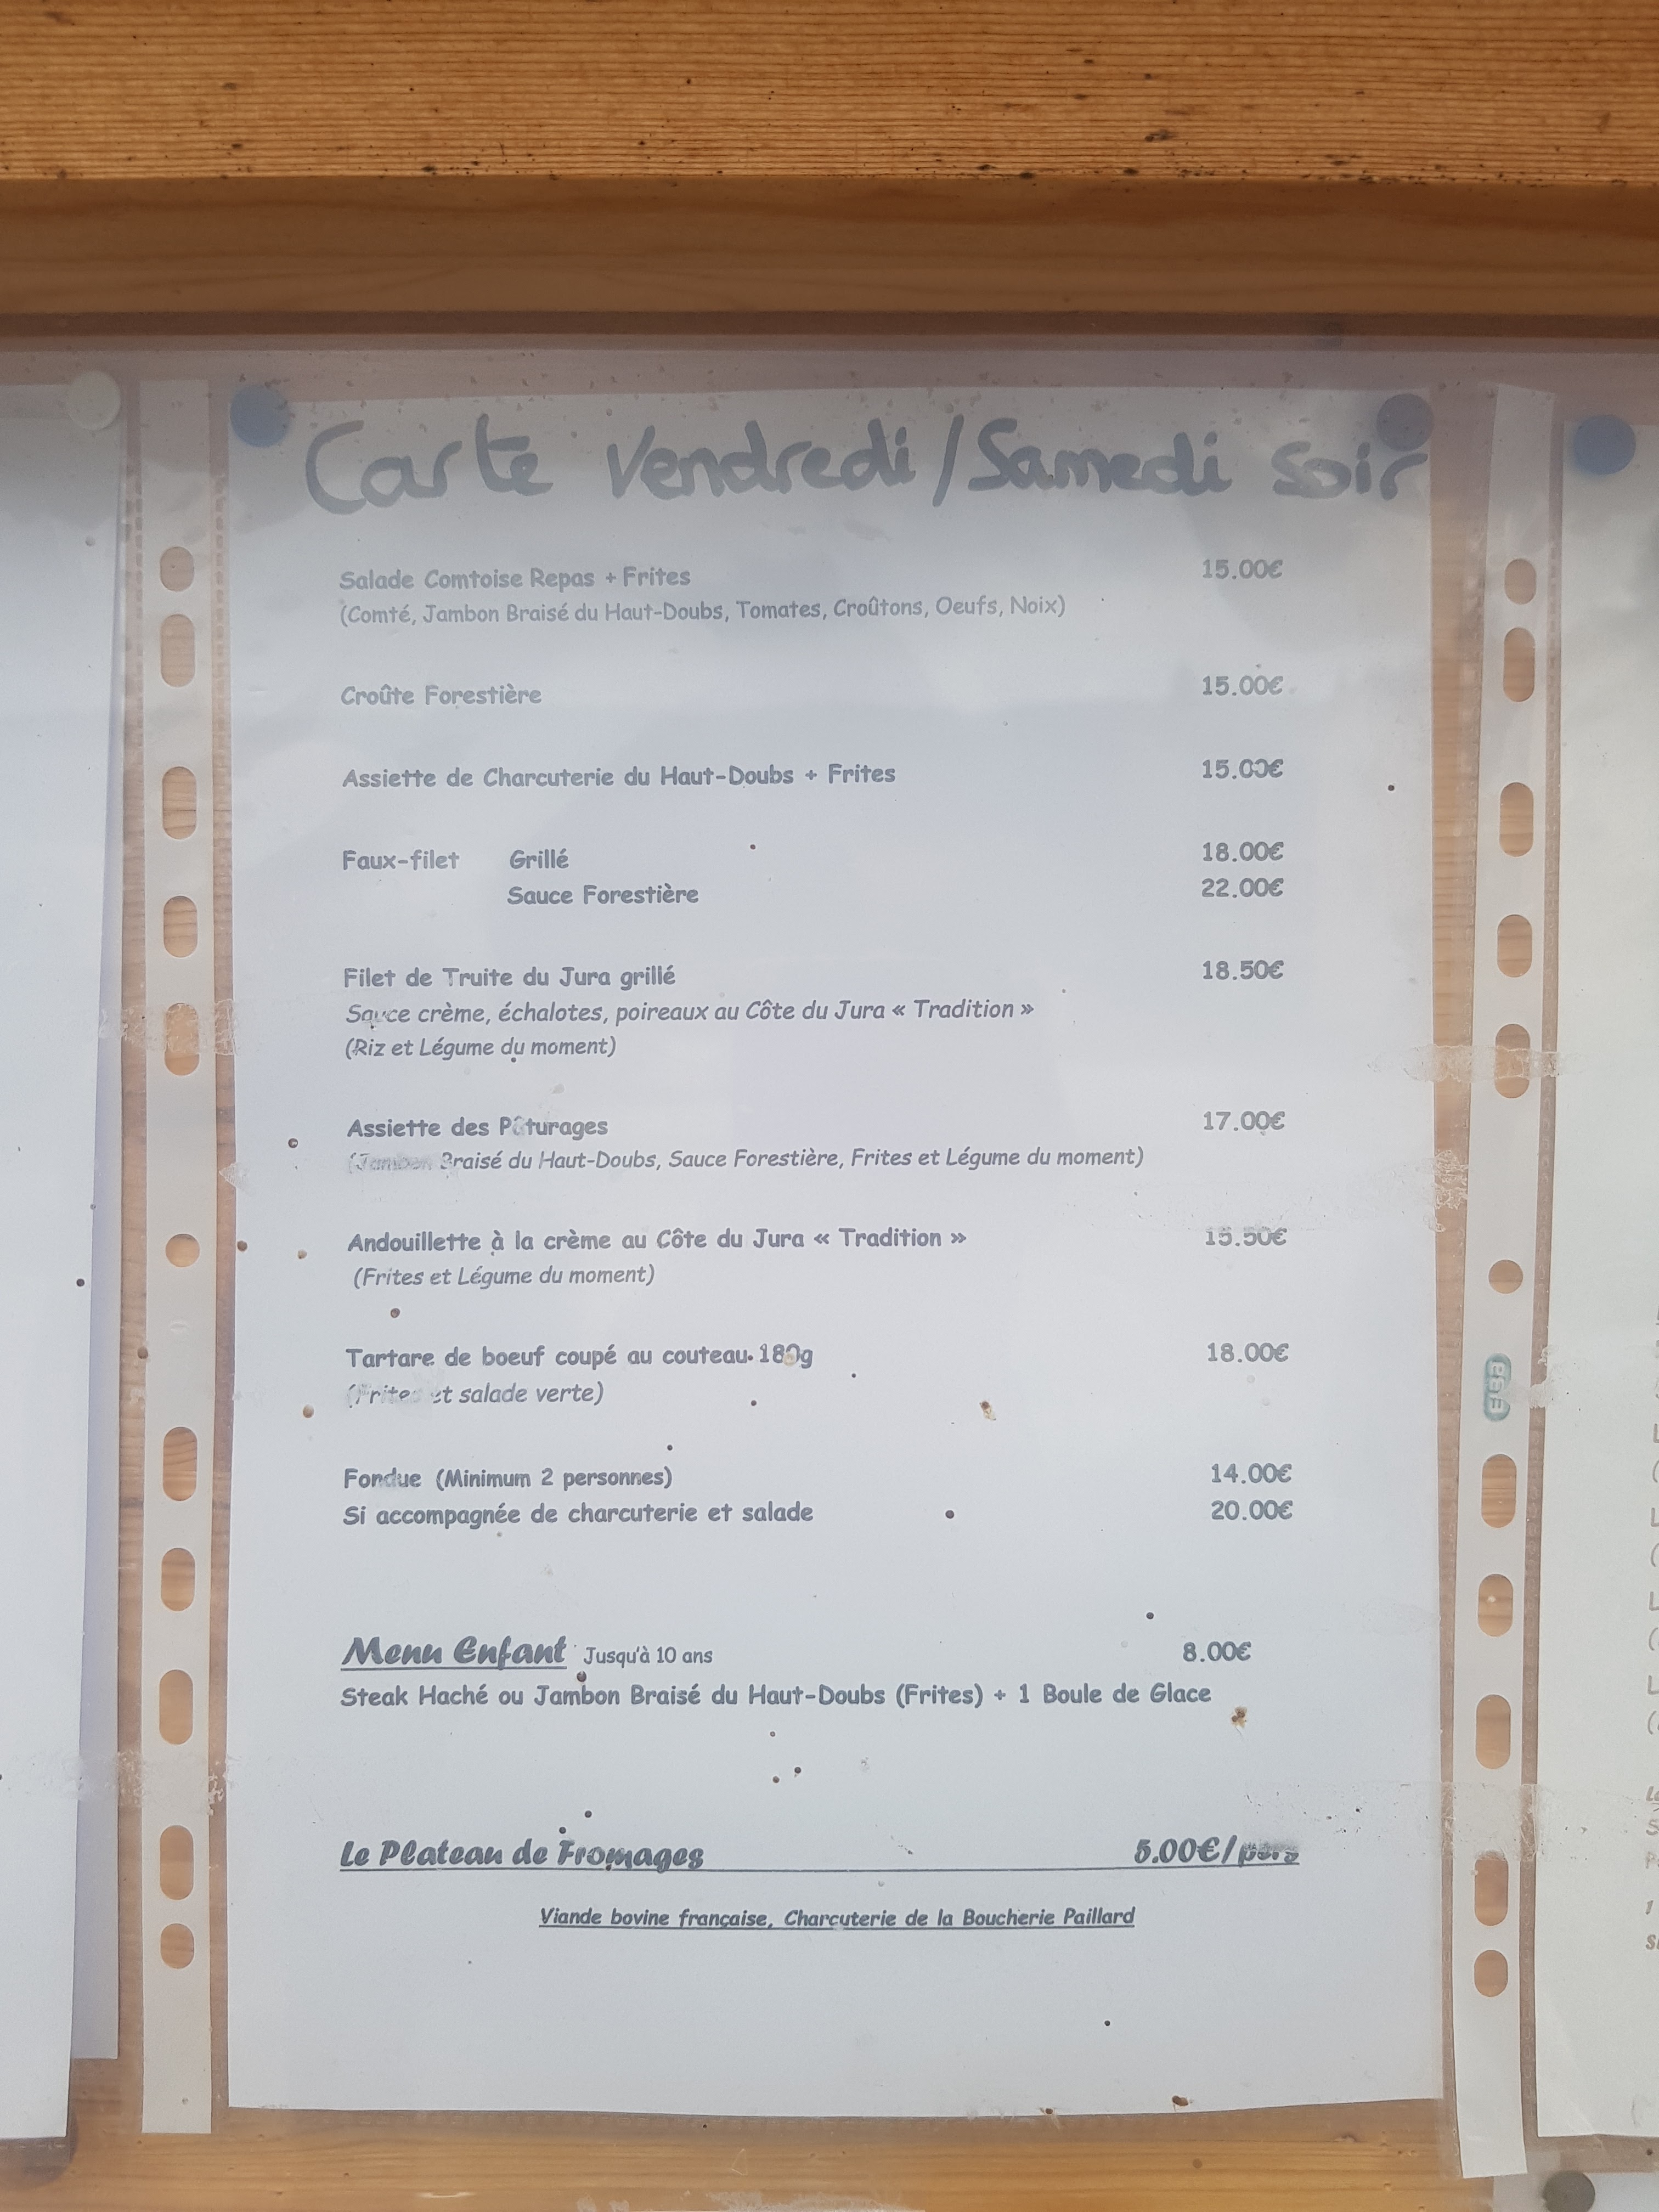 Carte Vendredi/Samedi Soir
Salade Comtoise Repas + Frites 15.00€
(Comté, Jambon Braisé du Haut-Doubs, Tomates, Croûtons, Oeufs, Noix)
Croûte Forestière 15.00€
Assiette de Charcuterie du Haut-Doubs + Frites 15.00€
Faux-filet Grillé 18.00€
Sauce Forestière 22.00€
Filet de Truite du Jura grillé 18.50€
Sauce crème, échalotes, poireaux au Côte du Jura « Tradition »
(Riz et Légume du moment)
Assiette des Pâturages 17.00€
(Jambon Braisé du Haut-Doubs, Sauce Forestière, Frites et Légume du moment)
Andouillette à la crème au Côte du Jura « Tradition » 15.50€
(Frites et Légume du moment)
Tartare de boeuf coupé au couteau 180g 18.00€
(Frites et salade verte)
Fondue (Minimum 2 personnes) 14.00€
Si accompagnée de charcuterie et salade 20.00€
Menu Enfant Jusqu'à 10 ans 8.00€
Steak Haché ou Jambon Braisé du Haut-Doubs (Frites) + 1 Boule de Glace
Le Plateau de Fromages 5.00€/pers
Viande bovine française, Charcuterie de la Boucherie Paillard